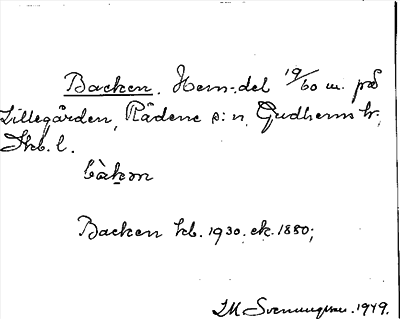 Backen. Hem.-del 19/60 m. på
Lillegården, Rådene s:n, Gudhems hr,
Skb. l.
bàkɔn
Backen kb. 1930. ek. 1880;
I M Svennungsson. 1949.